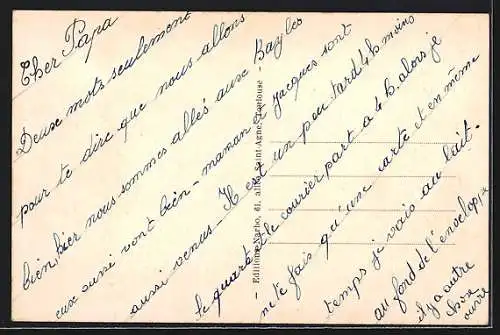 Cher Papa
Deux mots seulement
pour te dire que nous allons
bien, hier nous sommes allés aux Bayles
eux aussi vont bien - maman et Jacques sont
aussi venus - Il est un peu tard 4h moins
le quart le courrier part a 4h. alors je
ne te fais qu'une carte et en même
temps je vais au lait.
au fond de l'enveloppe
il y a autre
chose
ouvre
Editions Narbo, 61, allée Saint-Agne, Toulouse